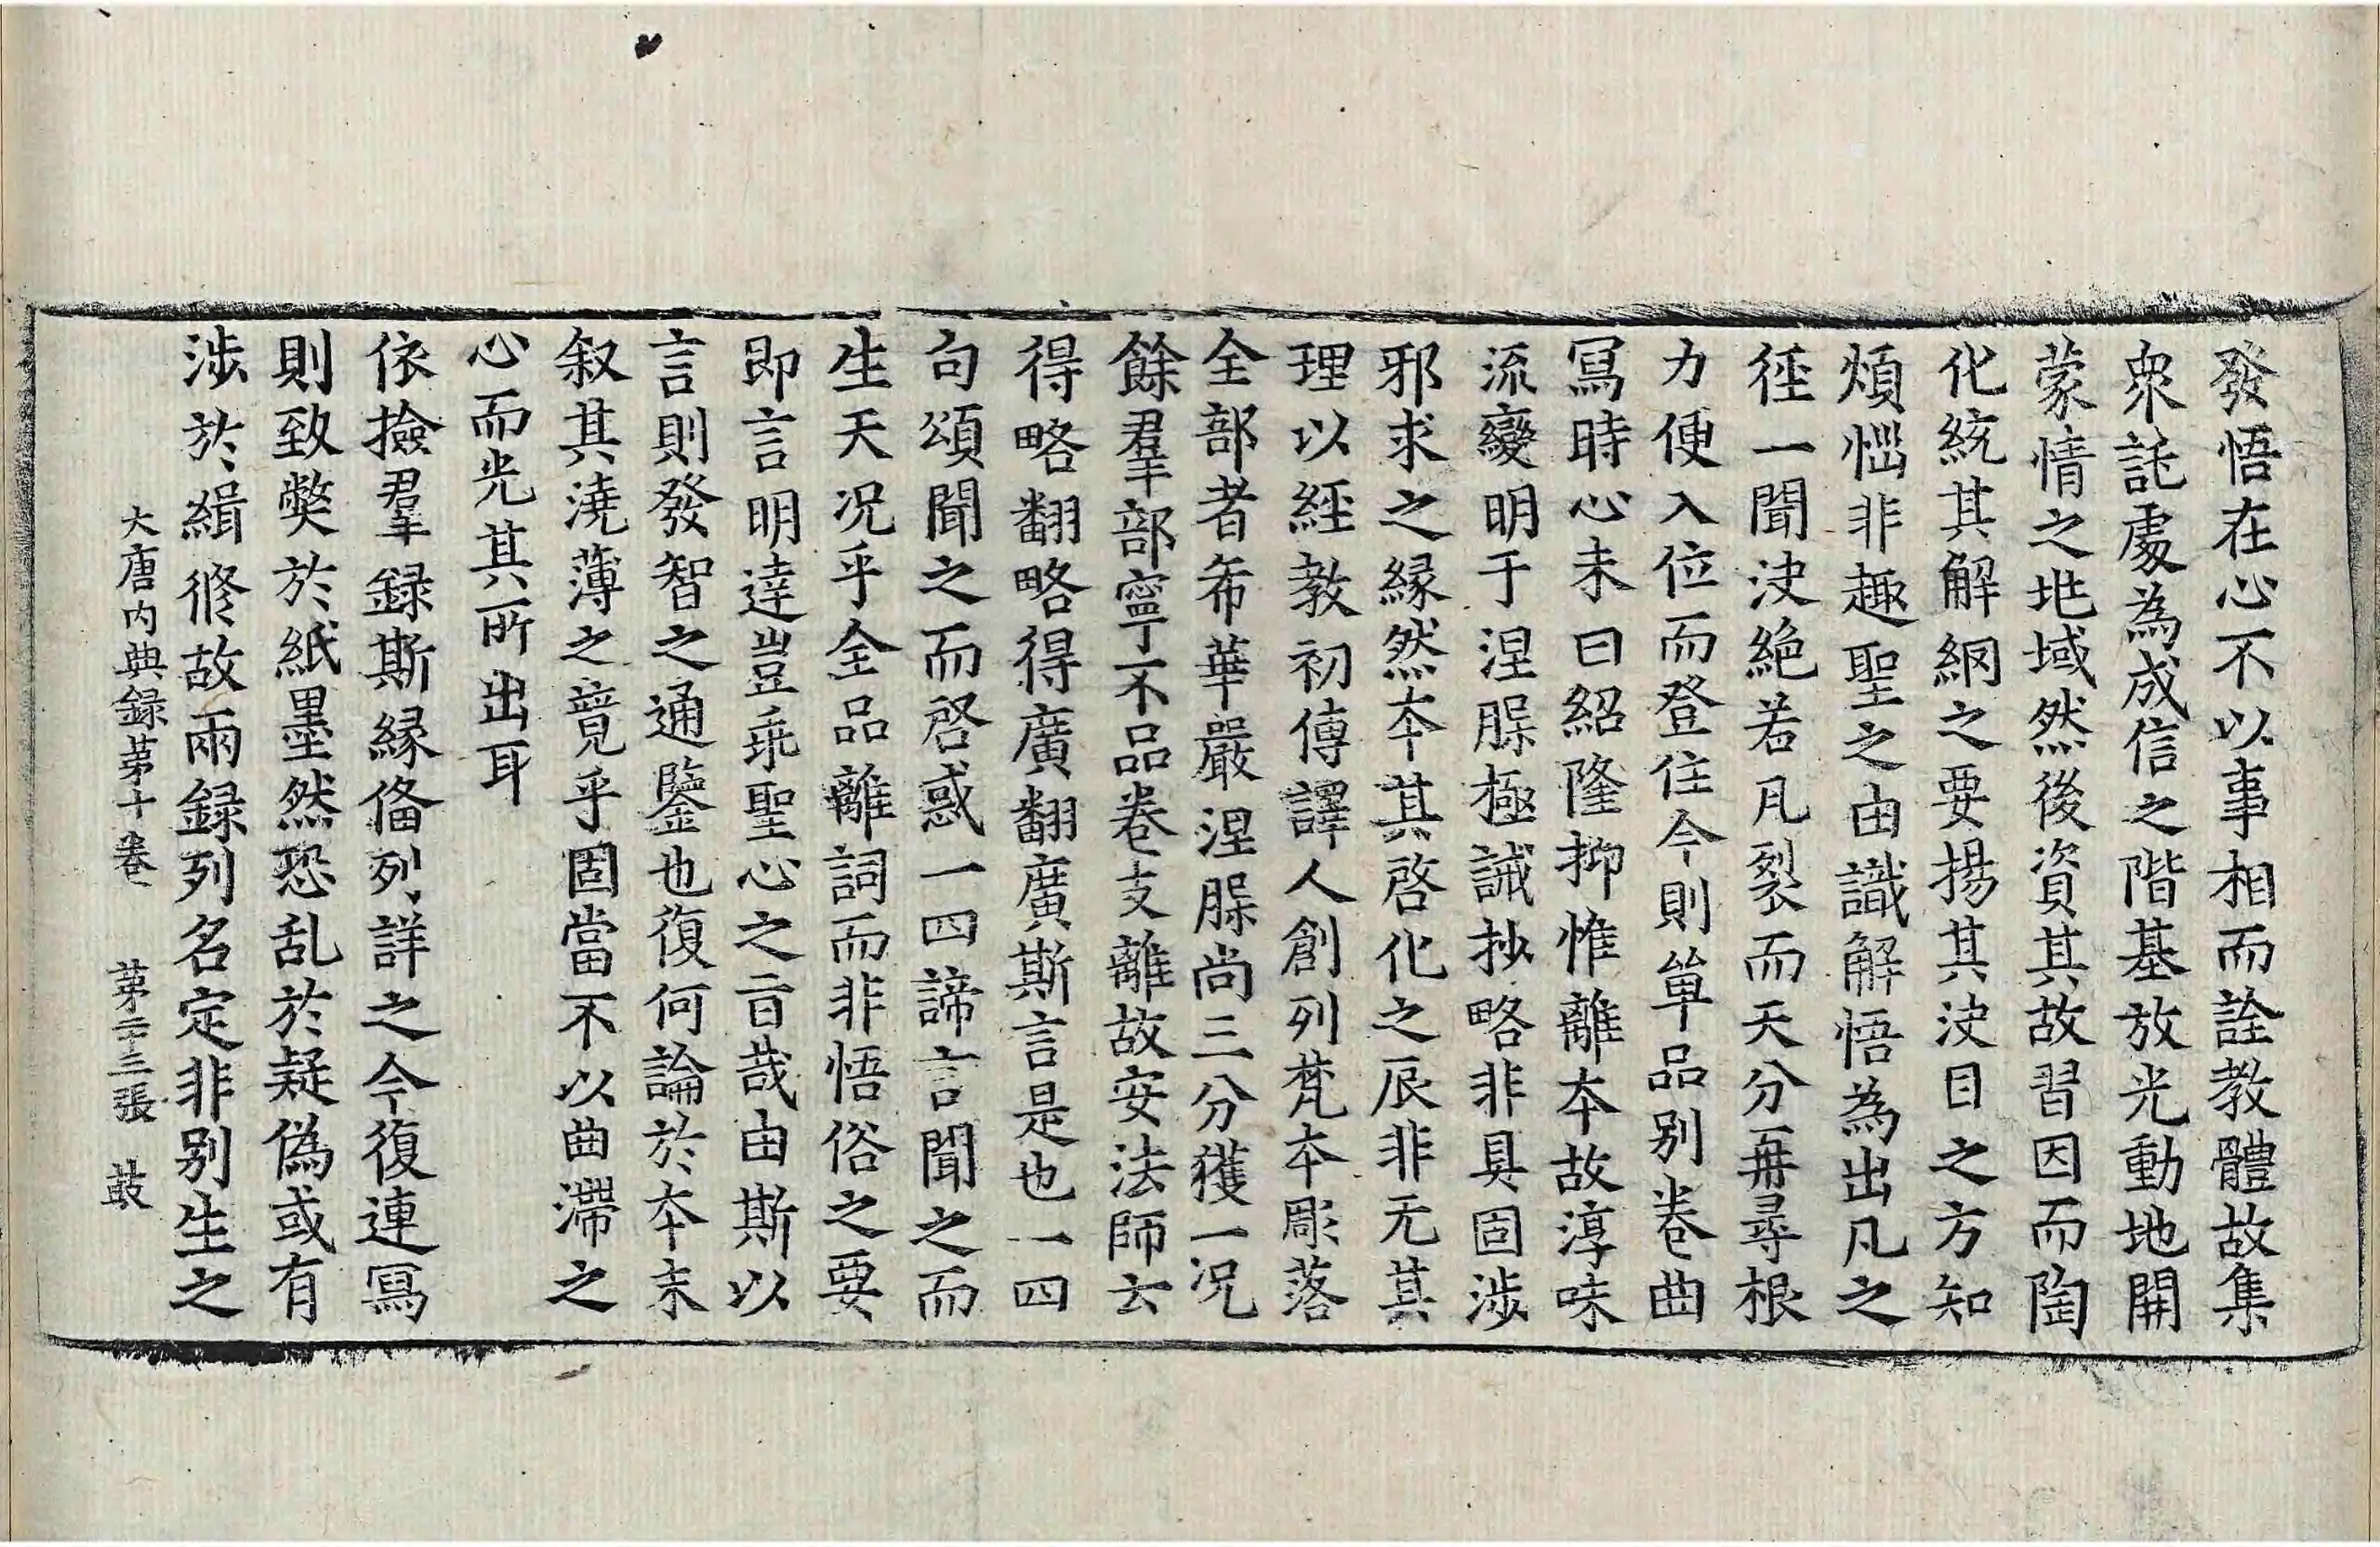 發悟在心不以事相而詮教體故集
衆託處為成信之階基放光動地開
蒙情之地域然後資其故習因而陶
化統其解網之要揚其決目之方知
煩惱非趣聖之由識解悟為出凡之
徑一聞決絶若凡裂而天分再尋根
力便入位而登住今則單品别卷曲
寫時心未曰紹隆抑惟離本故淳味
流變明于涅脲極誡抄略非具固涉
邪求之縁然本其啓化之辰非无其
理以經教初傳譯人創列梵本彫落
全部者希華嚴涅脲尚三分獲一况
餘羣部寧不品卷支離故安法師云
得略翻略得廣翻廣斯言是也一四
句頌聞之而啓惑一四諦言聞之而
生天况乎全品離詞而非悟俗之要
即言明達豈乖聖心之旨㦲由斯以
言則發智之通鑒也復何論於本末
叙其澆薄之竟乎固當不以曲滯之
心而光其所出耳
依撿羣録斯縁俻列詳之今復連寫
則致獘於紙墨然恐乱於疑偽或有
涉於緝修故兩録列名定非别生之
大唐内典録苐十卷 苐二十三張 鼓